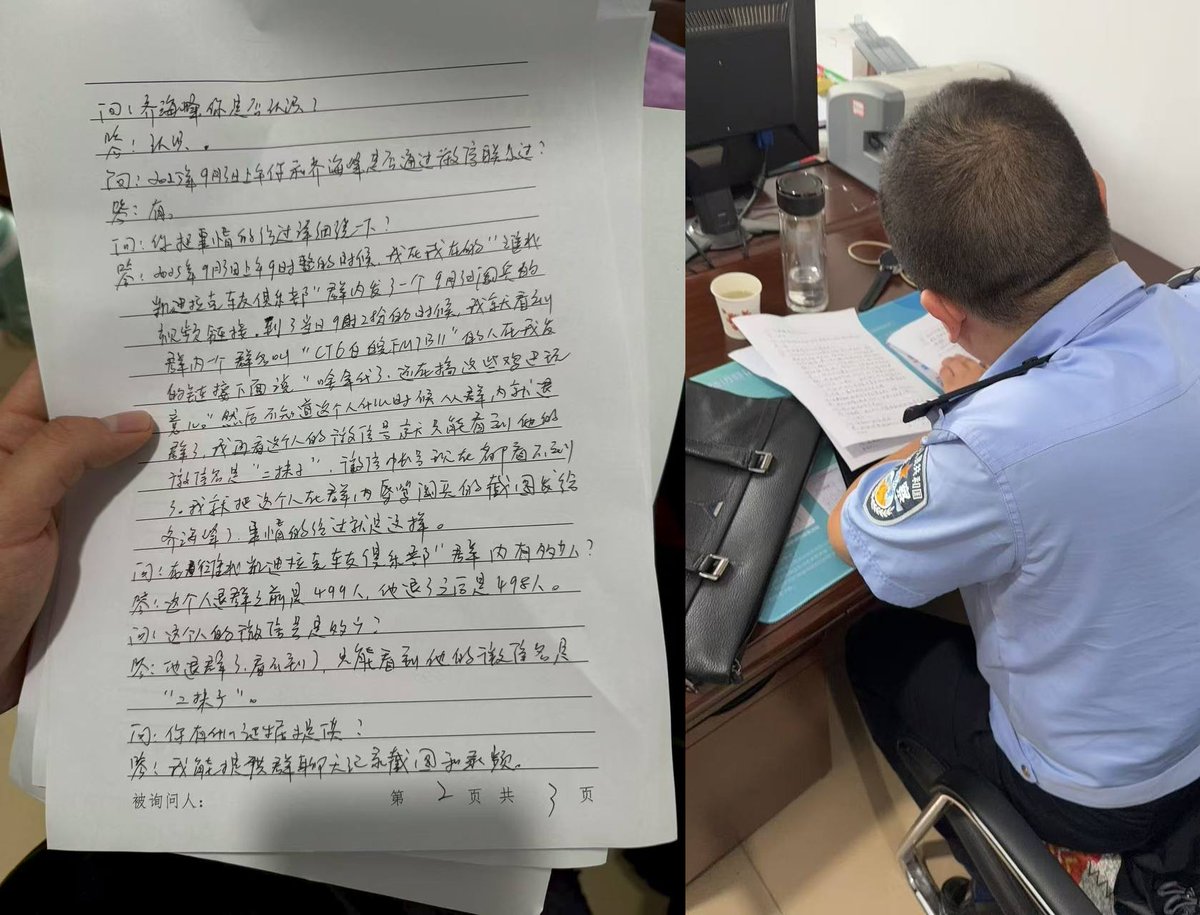 问：齐海峰你是否认识？
答：认识。
问：2025年9月3日上午你和齐海峰是否通过微信联系过？
答：有。
问：你把事情的经过详细说一下？
答：2025年9月3日上午9时整的时候，我在我在的“潍坊
凯迪拉克车友俱乐部”群内发了一个9月3日阅兵的
视频链接。到了当日9时2分的时候，我就看到
群内一个群名叫“CT6白皖FM7B11”的人在我发
的链接下面说“啥年代了，还在搞这些鸡巴玩
意儿。”然后不知道这个人什么时候从群内就退
群了，我再看这个人的微信号就只能看到他的
微信名是“二抹子”，微信帐号现在都看不到
了。我就把这个人在群内辱骂阅兵的截图发给
齐海峰了，事情的经过就是这样。
问：在潍坊凯迪拉克车友俱乐部”群内有多少人？
答：这个人退群之前是499人，他退了之后是498人。
问：这个人的微信号是多少？
答：他退群了，看不到了，只能看到他的微信名是
“二抹子”。
问：你有什么证据提供？
答：我能提供群聊天记录截图和录频。
被询问人： 第 2 页 共 3 页